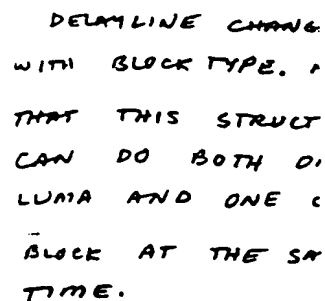 DELAYLINE CHANG
WITH BLOCK TYPE.
THAT THIS STRUCT
CAN DO BOTH O
LUMA AND ONE C
BLOCK AT THE SA
TIME.